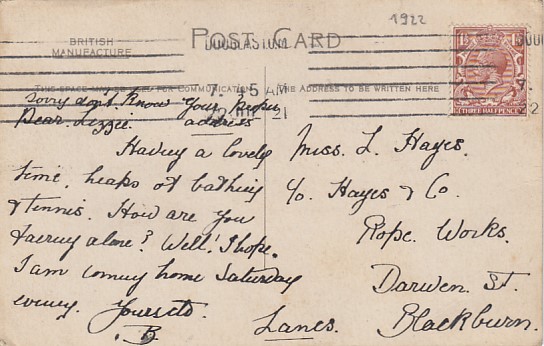 1922
BRITISH
MANUFACTURE
POST CARD
DOUGLAS I.O.M.
THIS SPACE MAY BE USED FOR COMMUNICATION
THE ADDRESS TO BE WRITTEN HERE
7.45 AM
21
THREE HALFPENCE
Sorry don't know your proper
address
Dear Lizzie.
Having a lovely
time, heaps of bathing
& tennis. How are you
faring alone? Well! I hope.
I am coming home Saturday
evening. Yours etc.
B.
Miss. L. Hayes.
c/o. Hayes & Co.
Rope. Works.
Darwen. St.
Blackburn.
Lancs.